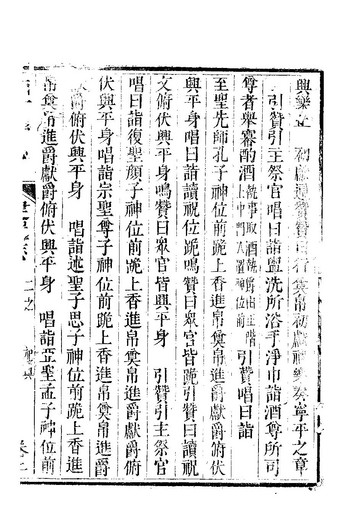 興樂 初獻通贊贊曰行奠帛初獻禮樂奏寧平之章
引贊引主祭官唱曰詣盥洗所浴手淨巾詣酒尊所司
尊者舉冪酌酒 引贊唱曰詣
至聖先師孔子神位前跪上香進帛奠帛進爵獻爵俯伏
興平身唱曰詣讀祝位跪鳴贊曰眾官皆跪引贊曰讀祝
文俯伏興平身鳴贊曰眾官皆興平身 引贊引主祭官
唱曰詣復聖顏子神位前跪上香進帛奠帛進爵獻爵俯
伏興平身唱詣宗聖曾子神位前跪上香進帛奠帛進爵
獻爵俯伏興平身 唱詣述聖子思子神位前跪上香進
帛奠帛進爵獻爵俯伏興平身 唱詣亞聖孟子神位前